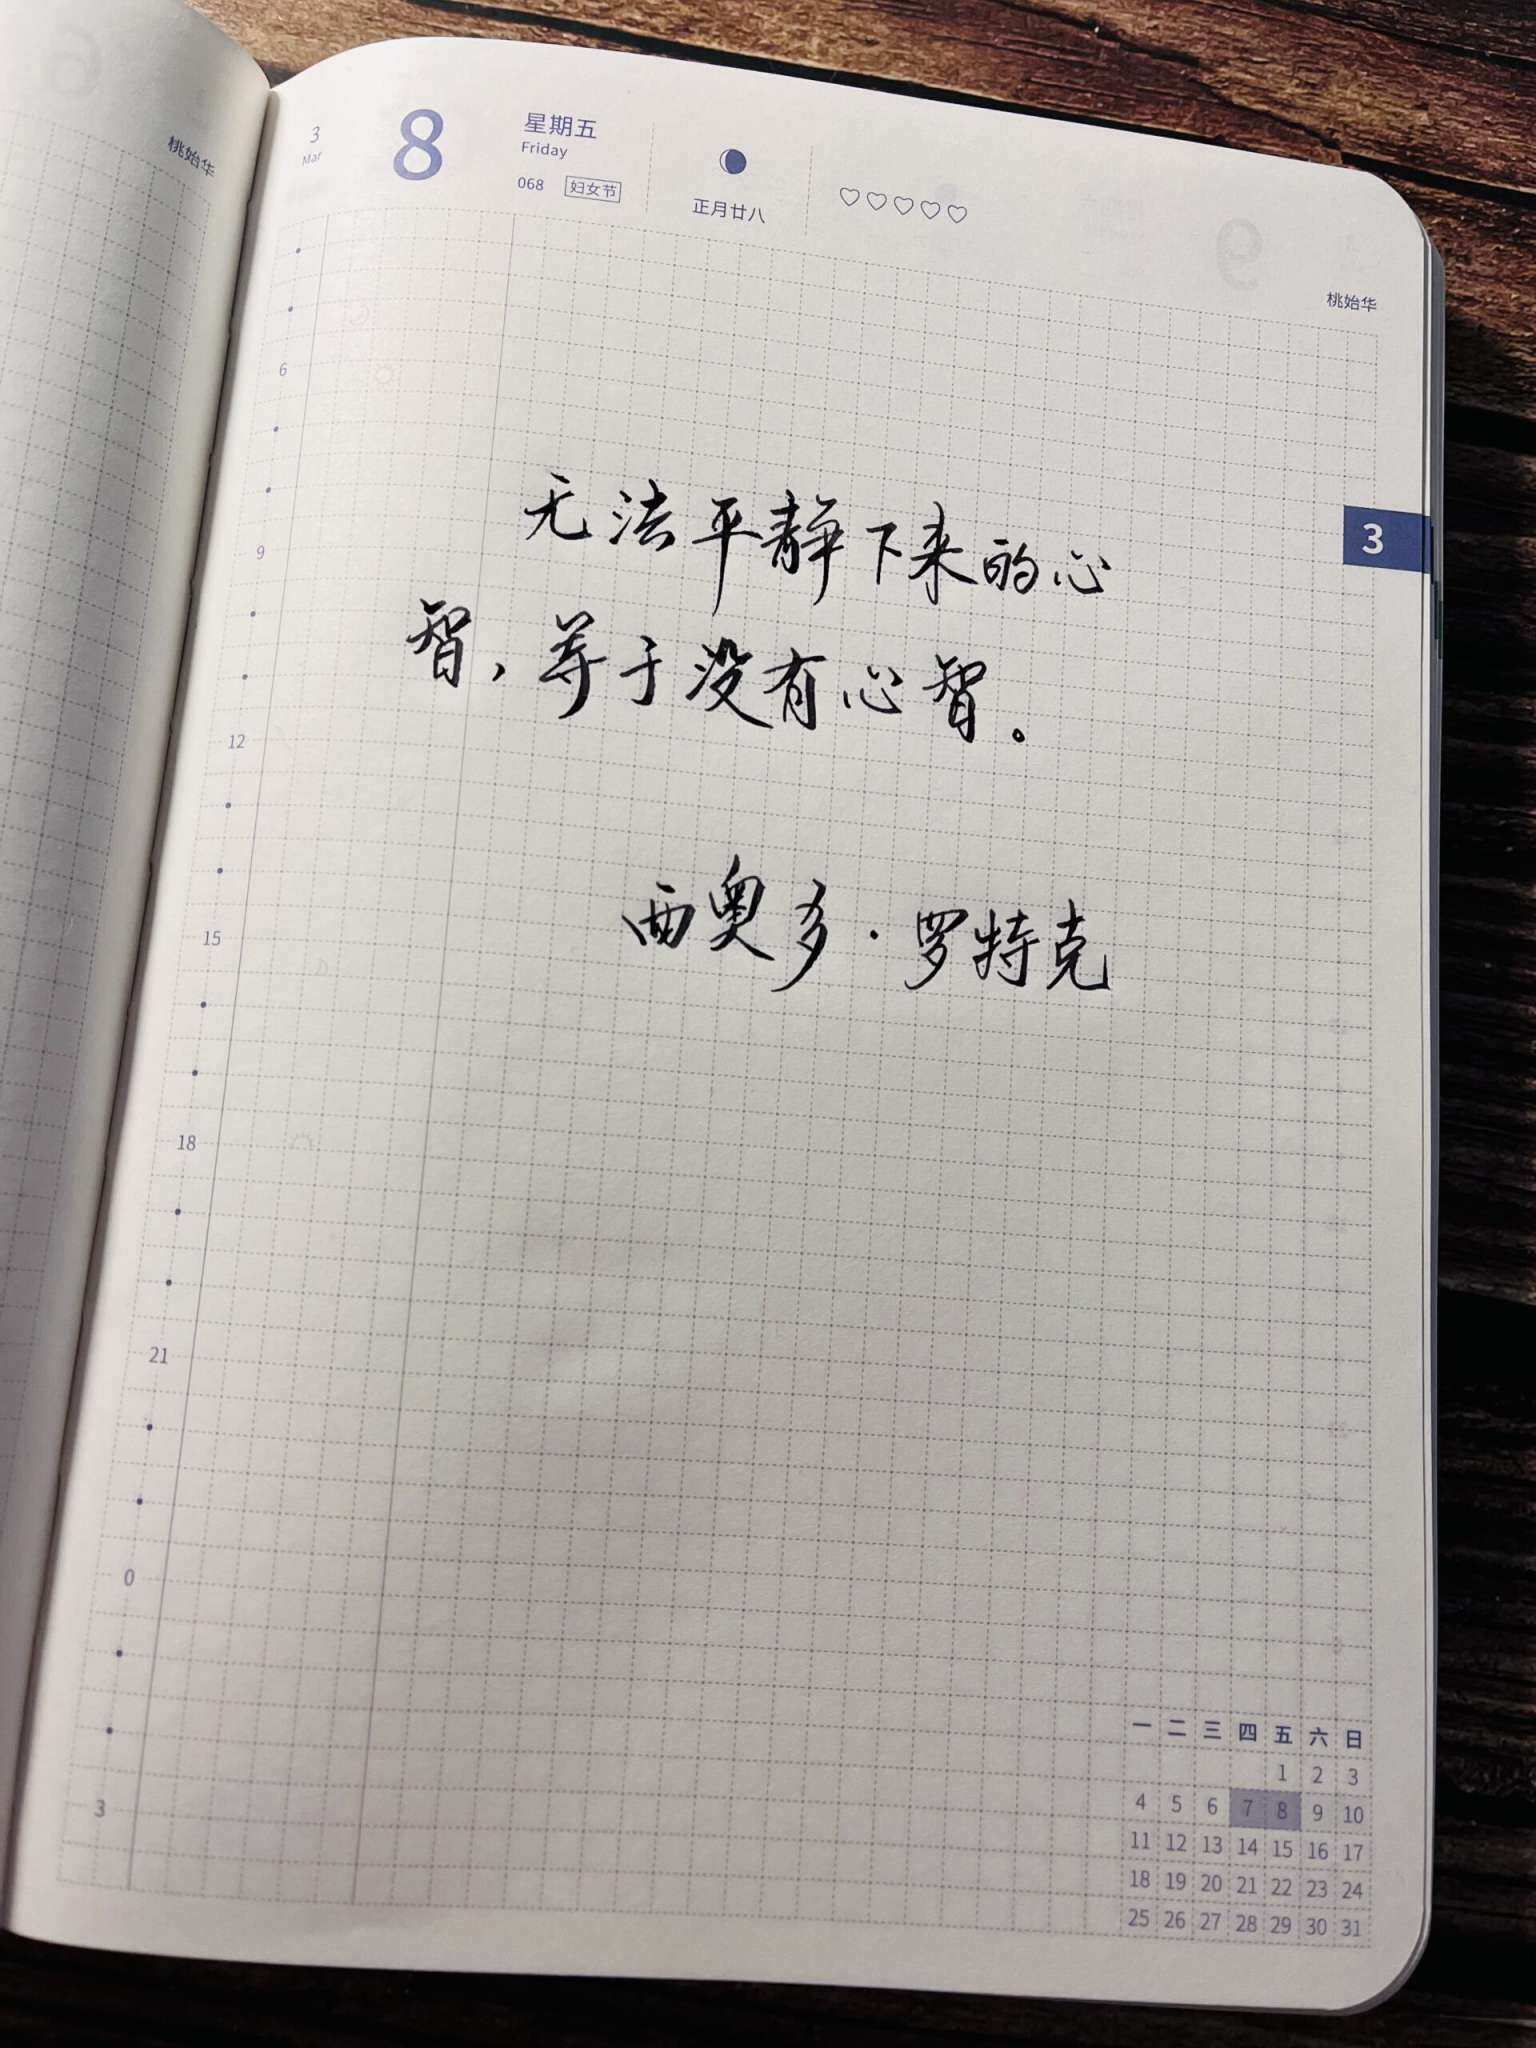 桃始华
3
Mar
8
星期五
Friday
068 妇女节
正月廿八
桃始华
3
6
9
12
15
18
21
0
3
无法平静下来的心
智，等于没有心智。
西奥多·罗特克
一 二 三 四 五 六 日
1 2 3
4 5 6 7 8 9 10
11 12 13 14 15 16 17
18 19 20 21 22 23 24
25 26 27 28 29 30 31